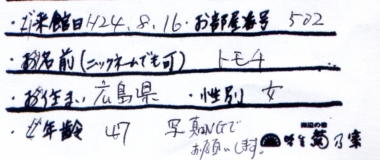 ・ご来館日 H24.8.16・お部屋番号 502
・お名前(ニックネームでも可) トモチ
・お住まい 広島県 ・性別 女
・ご年齢 47 写真NGで
お願いします。 菊乃家